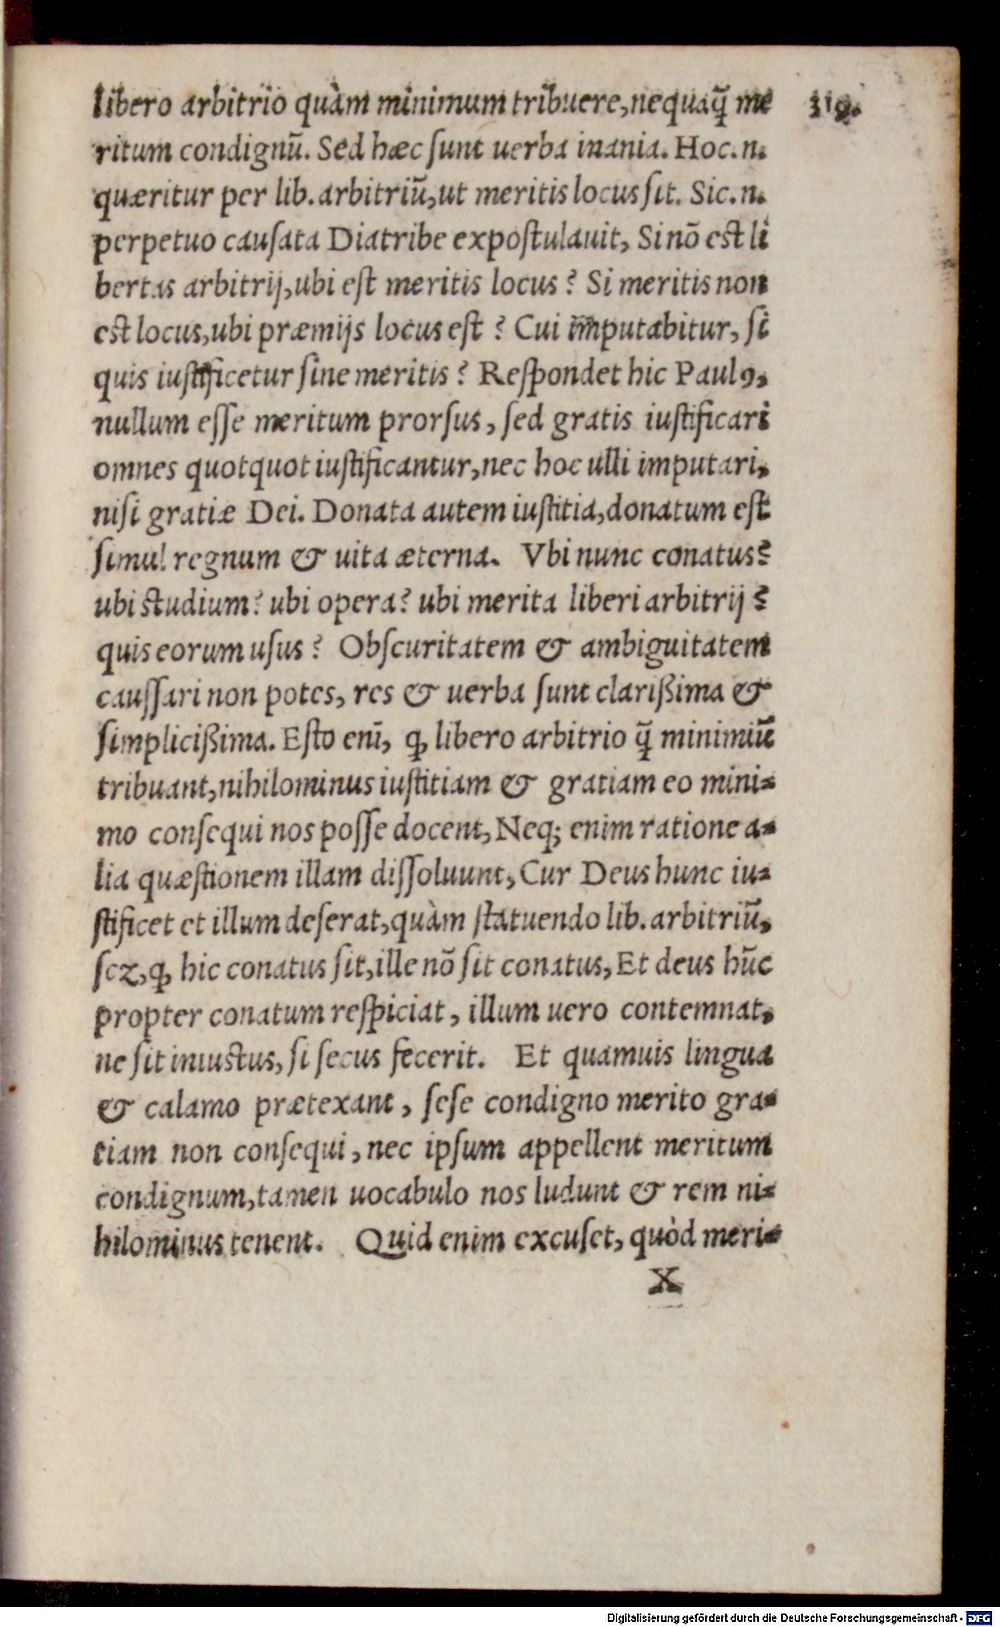 libero arbitrio quàm minimum tribuere, nequaq̃ me
ritum condignũ. Sed hæc ſunt uerba inania. Hoc. n.
quæritur per lib. arbitriũ, ut meritis locus ſit. Sic. n.
perpetuo cauſata Diatribe expoſtulauit, Si nõ est li
bertas arbitrij, ubi eſt meritis locus? Si meritis non
est locus, ubi præmijs locus eſt? Cui imputabitur, ſi
quis iuſtificetur ſine meritis? Reſpondet hic Paulꝰ,
nullum eſſe meritum prorſus, ſed gratis iuſtificari
omnes quotquot iuſtificantur, nec hoc ulli imputari,
niſi gratiæ Dei. Donata autem iuſtitia, donatum eſt
ſimul regnum & uita æterna. Vbi nunc conatus?
ubi studium? ubi opera? ubi merita liberi arbitrij?
quis eorum uſus? Obſcuritatem & ambiguitatem
cauſſari non potes, res & uerba ſunt clarißima &
ſimplicißima. Eſto enĩ, ꝙ libero arbitrio q̃ minimiũ
tribuant, nihilominus iuſtitiam & gratiam eo mini-
mo conſequi nos poſſe docent, Neq; enim ratione a-
lia quæſtionem illam diſſoluunt, Cur Deus hunc iu-
ſtificet et illum deſerat, quàm ſtatuendo lib. arbitriũ,
ſcꝫ, ꝙ hic conatus ſit, ille nõ ſit conatus, Et deus hũc
propter conatum reſpiciat, illum uero contemnat,
ne ſit iniustus, ſi ſecus fecerit. Et quamuis lingua
& calamo prætexant, ſeſe condigno merito gra-
tiam non conſequi, nec ipſum appellent meritum
condignum, tamen uocabulo nos ludunt & rem ni-
hilominus tenent. Quid enim excuſet, quòd meri-
X
319.
Digitalisierung gefördert durch die Deutsche Forschungsgemeinschaft - DFG